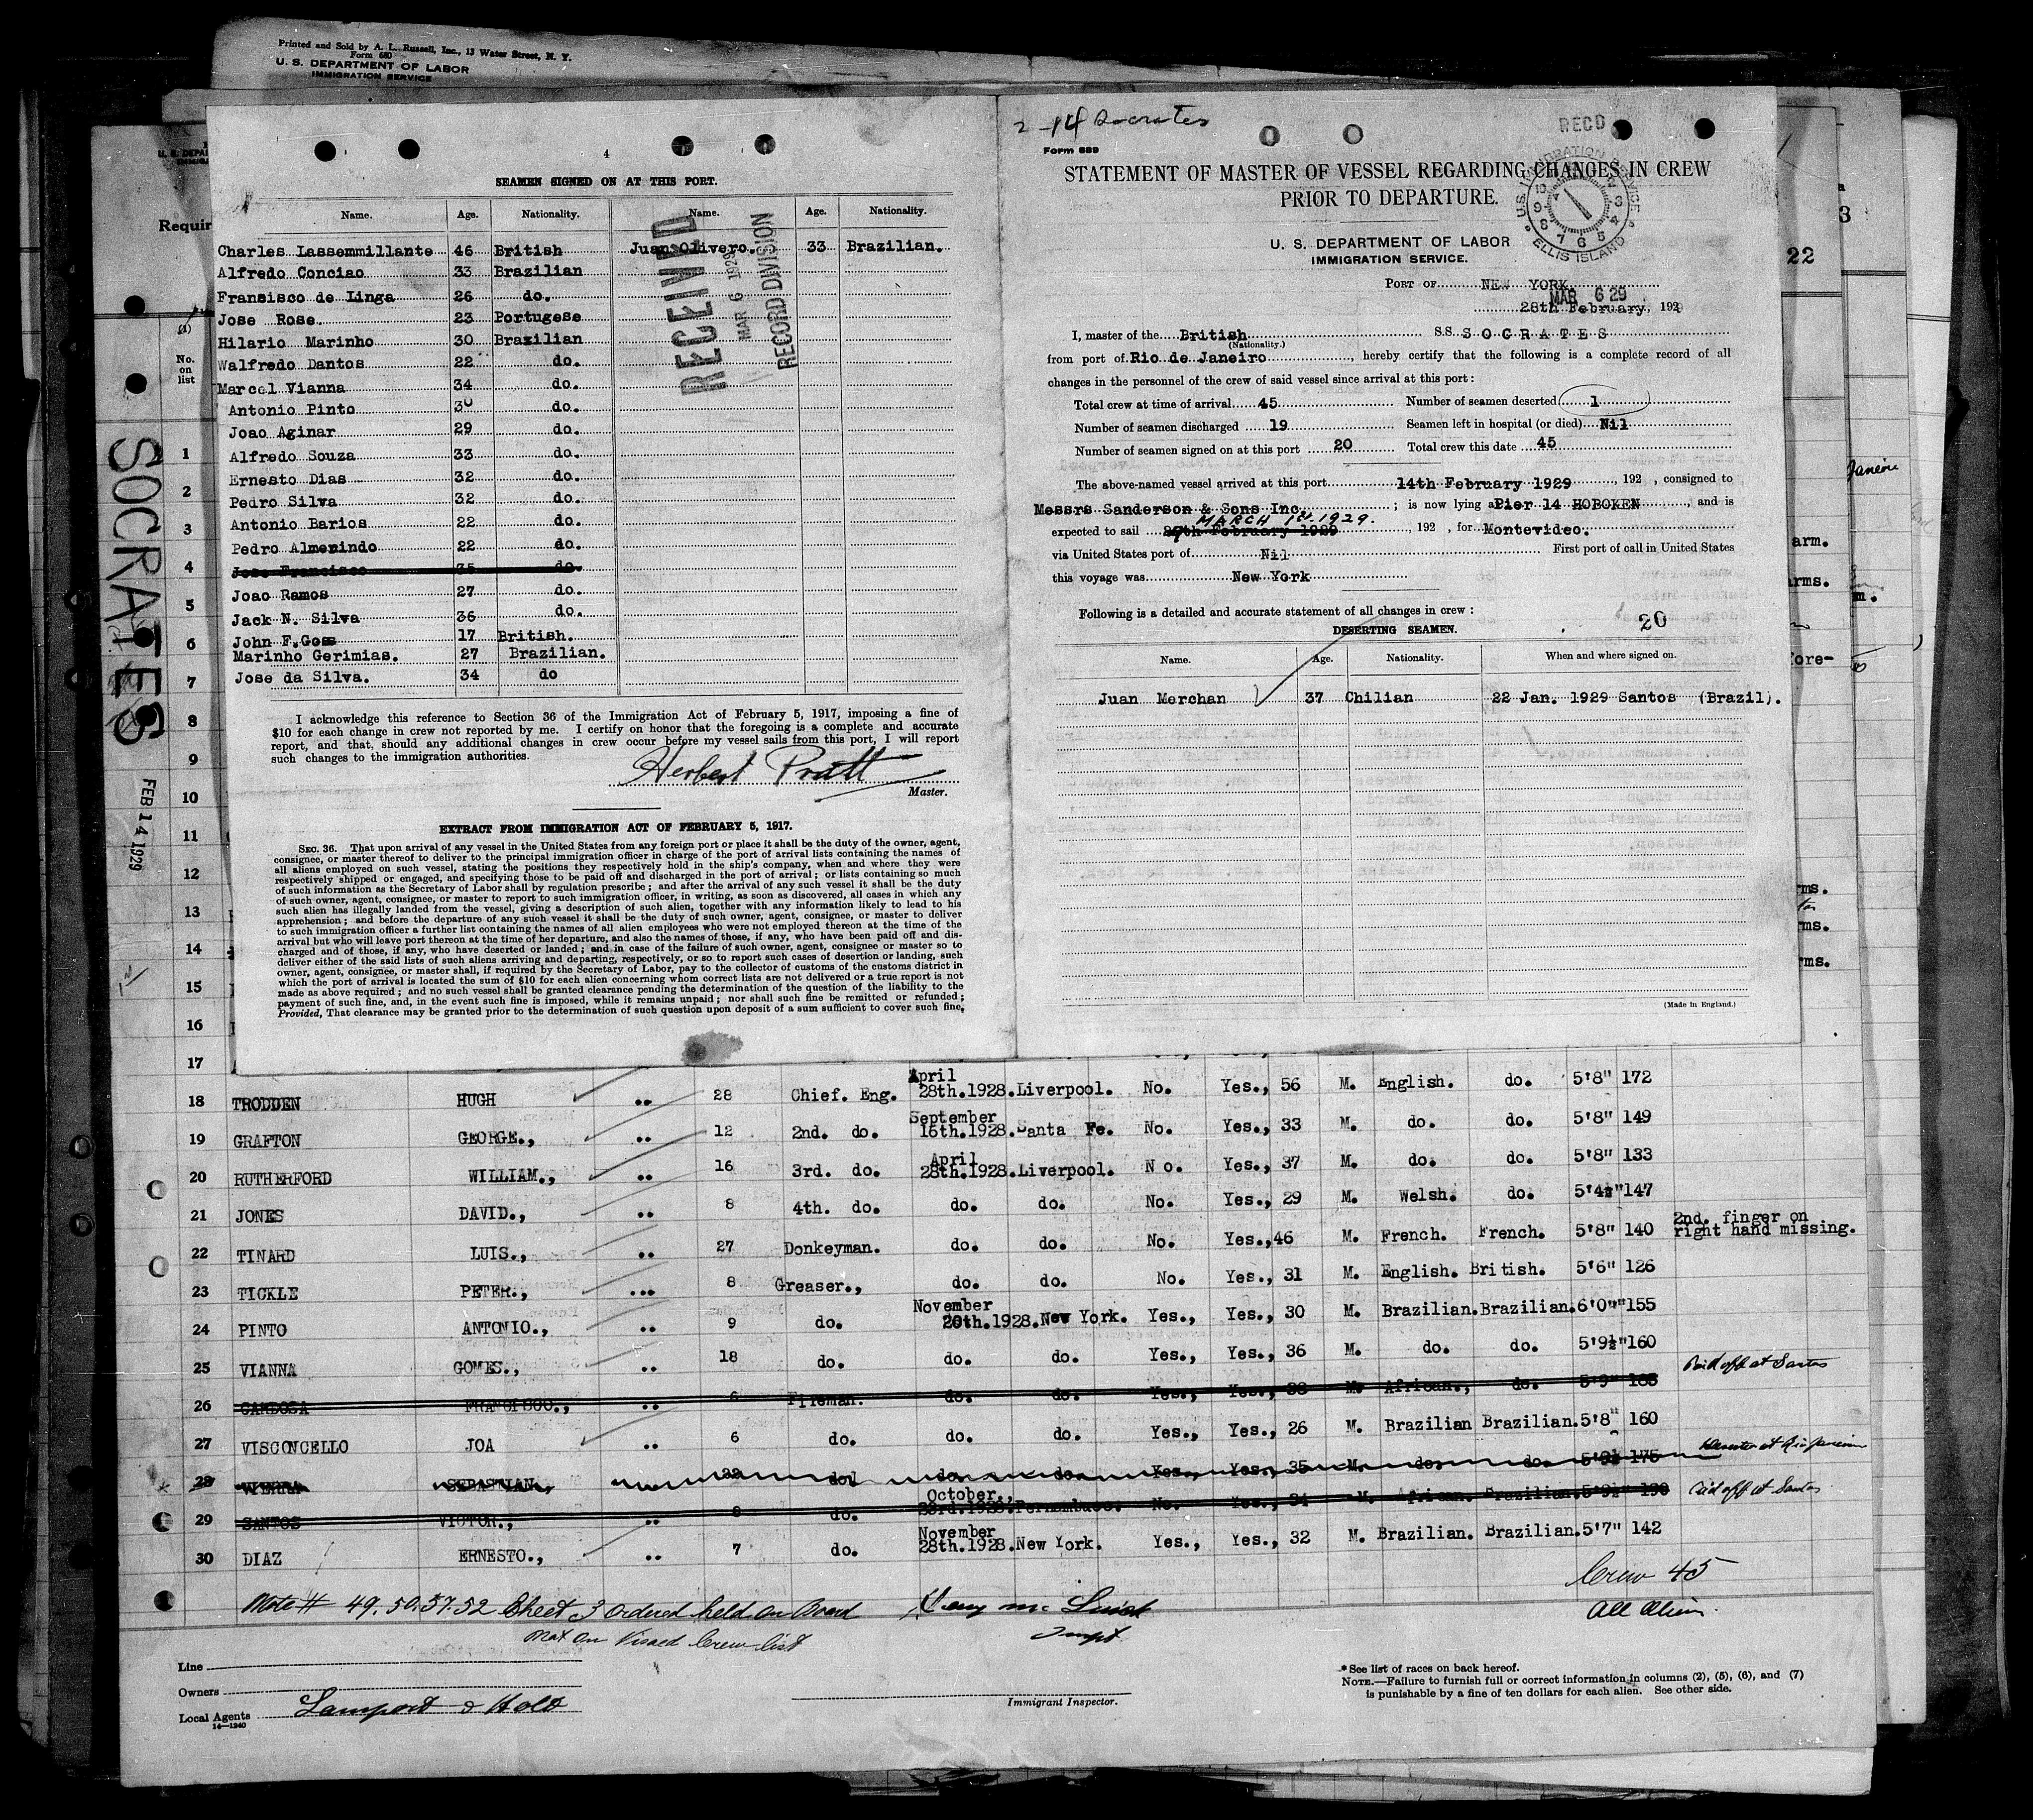 Printed and Sold by A. L. Russell, Inc., 13 Water Street, N. Y.
Form 680
U. S. DEPARTMENT OF LABOR
IMMIGRATION SERVICE
4
SEAMEN SIGNED ON AT THIS PORT.
Name. Age. Nationality. Name. Age. Nationality.
Charles Lassemmillante 46 British Juan Olivero. 33 Brazilian.
Alfredo Conciao 33 Brazilian
Francisco de Linga 26 do.
Jose Rose. 23 Portugese
Hilario Marinho 30 Brazilian
Walfredo Dantos 22 do.
Marcel Vianna 34 do.
Antonio Pinto 30 do.
Joao Aginar 29 do.
Alfredo Souza 33 do.
Ernesto Dias 32 do.
Pedro Silva 32 do.
Antonio Barios 22 do.
Pedro Almerindo 22 do.
Jose Francisco 35 do.
Joao Ramos 27 do.
Jack N. Silva 36 do.
John F.Goss 17 British.
Marinho Gerimias. 27 Brazilian.
Jose da Silva. 34 do
RECEIVED
MAR 6 1929
RECORD DIVISION
I acknowledge this reference to Section 36 of the Immigration Act of February 5, 1917, imposing a fine of
$10 for each change in crew not reported by me. I certify on honor that the foregoing is a complete and accurate
report, and that, should any additional changes in crew occur before my vessel sails from this port, I will report
such changes to the immigration authorities.
Herbert Pratt
Master.
EXTRACT FROM IMMIGRATION ACT OF FEBRUARY 5, 1917.
SEC. 36. That upon arrival of any vessel in the United States from any foreign port or place it shall be the duty of the owner, agent,
consignee, or master thereof to deliver to the principal immigration officer in charge of the port of arrival lists containing the names of
all aliens employed on such vessel, stating the positions they respectively hold in the ship's company, when and where they were
respectively shipped or engaged, and specifying those to be paid off and discharged in the port of arrival; or lists containing so much
of such information as the Secretary of Labor shall by regulation prescribe; and after the arrival of any such vessel it shall be the duty
of such owner, agent, consignee, or master to report to such immigration officer, in writing, as soon as discovered, all cases in which any
such alien has illegally landed from the vessel, giving a description of such alien, together with any information likely to lead to his
apprehension; and before the departure of any such vessel it shall be the duty of such owner, agent, consignee, or master to deliver
to such immigration officer a further list containing the names of all alien employees who were not employed thereon at the time of the
arrival but who will leave port thereon at the time of her departure, and also the names of those, if any, who have been paid off and dis-
charged and of those, if any, who have deserted or landed; and in case of the failure of such owner, agent, consignee or master so to
deliver either of the said lists of such aliens arriving and departing, respectively, or so to report such cases of desertion or landing, such
owner, agent, consignee, or master shall, if required by the Secretary of Labor, pay to the collector of customs of the customs district in
which the port of arrival is located the sum of $10 for each alien concerning whom correct lists are not delivered or a true report is not
made as above required; and no such vessel shall be granted clearance pending the determination of the question of the liability to the
payment of such fine, and, in the event such fine is imposed, while it remains unpaid; nor shall such fine be remitted or refunded;
Provided, That clearance may be granted prior to the determination of such question upon deposit of a sum sufficient to cover such fine.
2-14 Socrates
Form 689
RECD
U.S. IMMIGRATION SERVICE
ELLIS ISLAND
STATEMENT OF MASTER OF VESSEL REGARDING CHANGES IN CREW
PRIOR TO DEPARTURE.
U. S. DEPARTMENT OF LABOR
IMMIGRATION SERVICE.
PORT OF NEW YORK.
MAR 6 29
28th February, 1929
I, master of the British S.S. SOCRATES
(Nationality.)
from port of Rio de Janeiro, hereby certify that the following is a complete record of all
changes in the personnel of the crew of said vessel since arrival at this port:
Total crew at time of arrival 45 Number of seamen deserted 1
Number of seamen discharged 19 Seamen left in hospital (or died) Nil
Number of seamen signed on at this port 20 Total crew this date 45
The above-named vessel arrived at this port 14th February 1929, 192 , consigned to
Messrs Sanderson & Sons Inc.; is now lying a Pier 14 HOBOKEN, and is
MARCH 1st. 1929.
expected to sail 27th February 1929, 192 , for Montevideo.
via United States port of Nil First port of call in United States
this voyage was New York
Following is a detailed and accurate statement of all changes in crew:
20
DESERTING SEAMEN.
Name. Age. Nationality. When and where signed on.
Juan Merchan 37 Chilian 22 Jan. 1929 Santos (Brazil).
(Made in England.)
Requir
(1)
No.
on
list
SOCRATES
FEB 14 1929
22
3
Janeiro
arm.
arms.
m.
fore-
rms.
rms.
rms.
1
2
3
4
5
6
7
8
9
10
11
12
13
14
15
16
17
18 TRODDEN HUGH .. 28 Chief. Eng. April 28th.1928. Liverpool. No. Yes., 56 M. English. do. 5'8" 172
19 GRAFTON GEORGE., .. 12 2nd. do. September 16th.1928. Santa Fe. No. Yes., 33 M. do. do. 5'8" 149
20 RUTHERFORD WILLIAM., .. 16 3rd. do. April 28th.1928. Liverpool. No. Yes., 37 M. do. do. 5'8" 133
21 JONES DAVID., .. 8 4th. do. do. do. No. Yes., 29 M. Welsh. do. 5'4½" 147
22 TINARD LUIS., .. 27 Donkeyman. do. do. No. Yes., 46 M. French. French. 5'8" 140 2nd. finger on right hand missing.
23 TICKLE PETER., ... 8 Greaser., do. do. No. Yes., 31 M. English. British. 5'6" 126
24 PINTO ANTONIO., .. 9 do. November 20th.1928. New York. Yes., Yes., 30 M. Brazilian. Brazilian. 6'0" 155
25 VIANNA GOMES., .. 18 do. do. do. Yes., Yes., 36 M. do. do. 5'9½" 160
26 CARDOSA FRANCISCO., .. 6 Fireman. do. do. Yes., Yes., 38 M. African., do. 5'9" 168 Paid off at Santos
27 VISCONCELLO JOA .. 6 do. do. do. Yes., Yes., 26 M. Brazilian Brazilian. 5'8" 160
28 VIERRA SEBASTIAN., do. do. do. Yes., Yes., 35 M. do. do. 5'9½ 175 Deserter at Rio Janeiro
29 SANTOS VICTOR., .. 8 do. October., 23rd.1928. Pernambuco. No. Yes., 34 M. African. Brazilian. 5'9½" 190 Paid off at Santos
30 DIAZ ERNESTO., .. 7 do. November 28th.1928. New York. Yes., Yes., 32 M. Brazilian. Brazilian. 5'7" 142
Crew 45
All Aliens.
Note # 49. 50. 57. 52 Sheet 3 ordered held on Board
not on Visaed Crew list
Line
Owners
Local Agents Lamport & Holt
14—1240
Immigrant Inspector.
* See list of races on back hereof.
NOTE.—Failure to furnish full or correct information in columns (2), (5), (6), and (7)
is punishable by a fine of ten dollars for each alien. See other side.